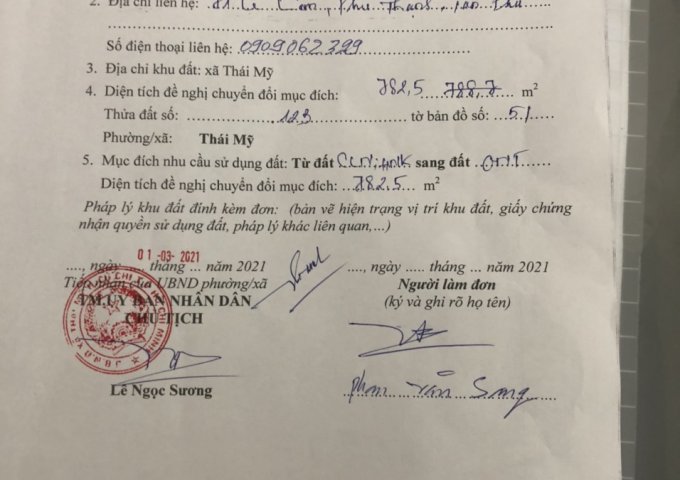 2. Địa chỉ liên hệ:
Số điện thoại liên hệ: 0909062399
3. Địa chỉ khu đất: xã Thái Mỹ
4. Diện tích đề nghị chuyển đổi mục đích: 782,5 788,7 m²
Thửa đất số: 123 tờ bản đồ số: 51
Phường/xã: Thái Mỹ
5. Mục đích nhu cầu sử dụng đất: Từ đất sang đất ONT
Diện tích đề nghị chuyển đổi mục đích: 782,5 m²
Pháp lý khu đất đính kèm đơn: (bản vẽ hiện trạng vị trí khu đất, giấy chứng
nhận quyền sử dụng đất, pháp lý khác liên quan,...)
01-03-2021
...., ngày ...... tháng ... năm 2021
Tiếp nhận của UBND phường/xã
TM.ỦY BAN NHÂN DÂN
CHỦ TỊCH
Lê Ngọc Sương
...., ngày ...... tháng ... năm 2021
Người làm đơn
(ký và ghi rõ họ tên)
Phan Văn Sang